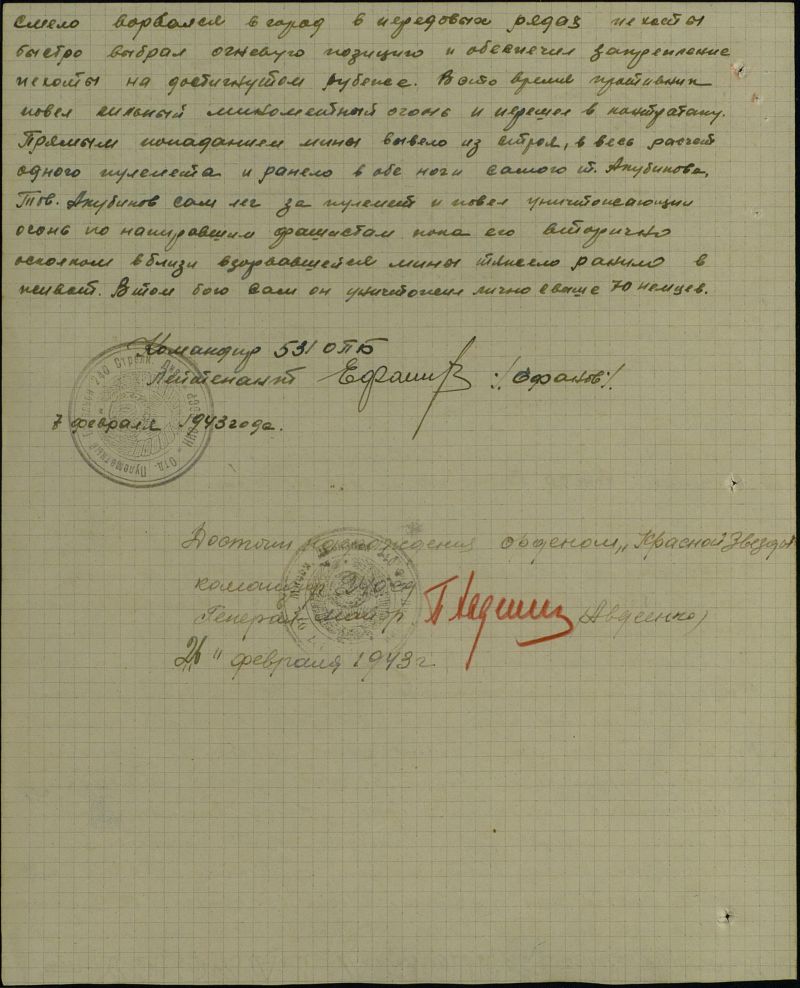 смело ворвался в город в передовых рядах пехоты
быстро выбрал огневую позицию и обеспечил закрепление
пехоты на достигнутом рубеже. В это время противник
повел сильный минометный огонь и перешел в контратаку.
Прямым попаданием мины вывело из строя, в весь расчет
одного пулемета и ранело в обе ноги самого т. Якубинова,
Тов. Якубинов сам лег за пулемет и повел уничтожающий
огонь по напиравшим фашистам пока его вторично
осколком вблизи взорвавшейся мины тяжело ранило в
живот. В том бою сам он уничтожил лично свыше 70 немцев.
Командир 531 ОПБ
Лейтенант
7 февраля 1943 года.
Достоин награждения орденом „Красной Звезды
командир 240 сд
Генерал майор (Авдеенко)
26 " февраля 1943 г.